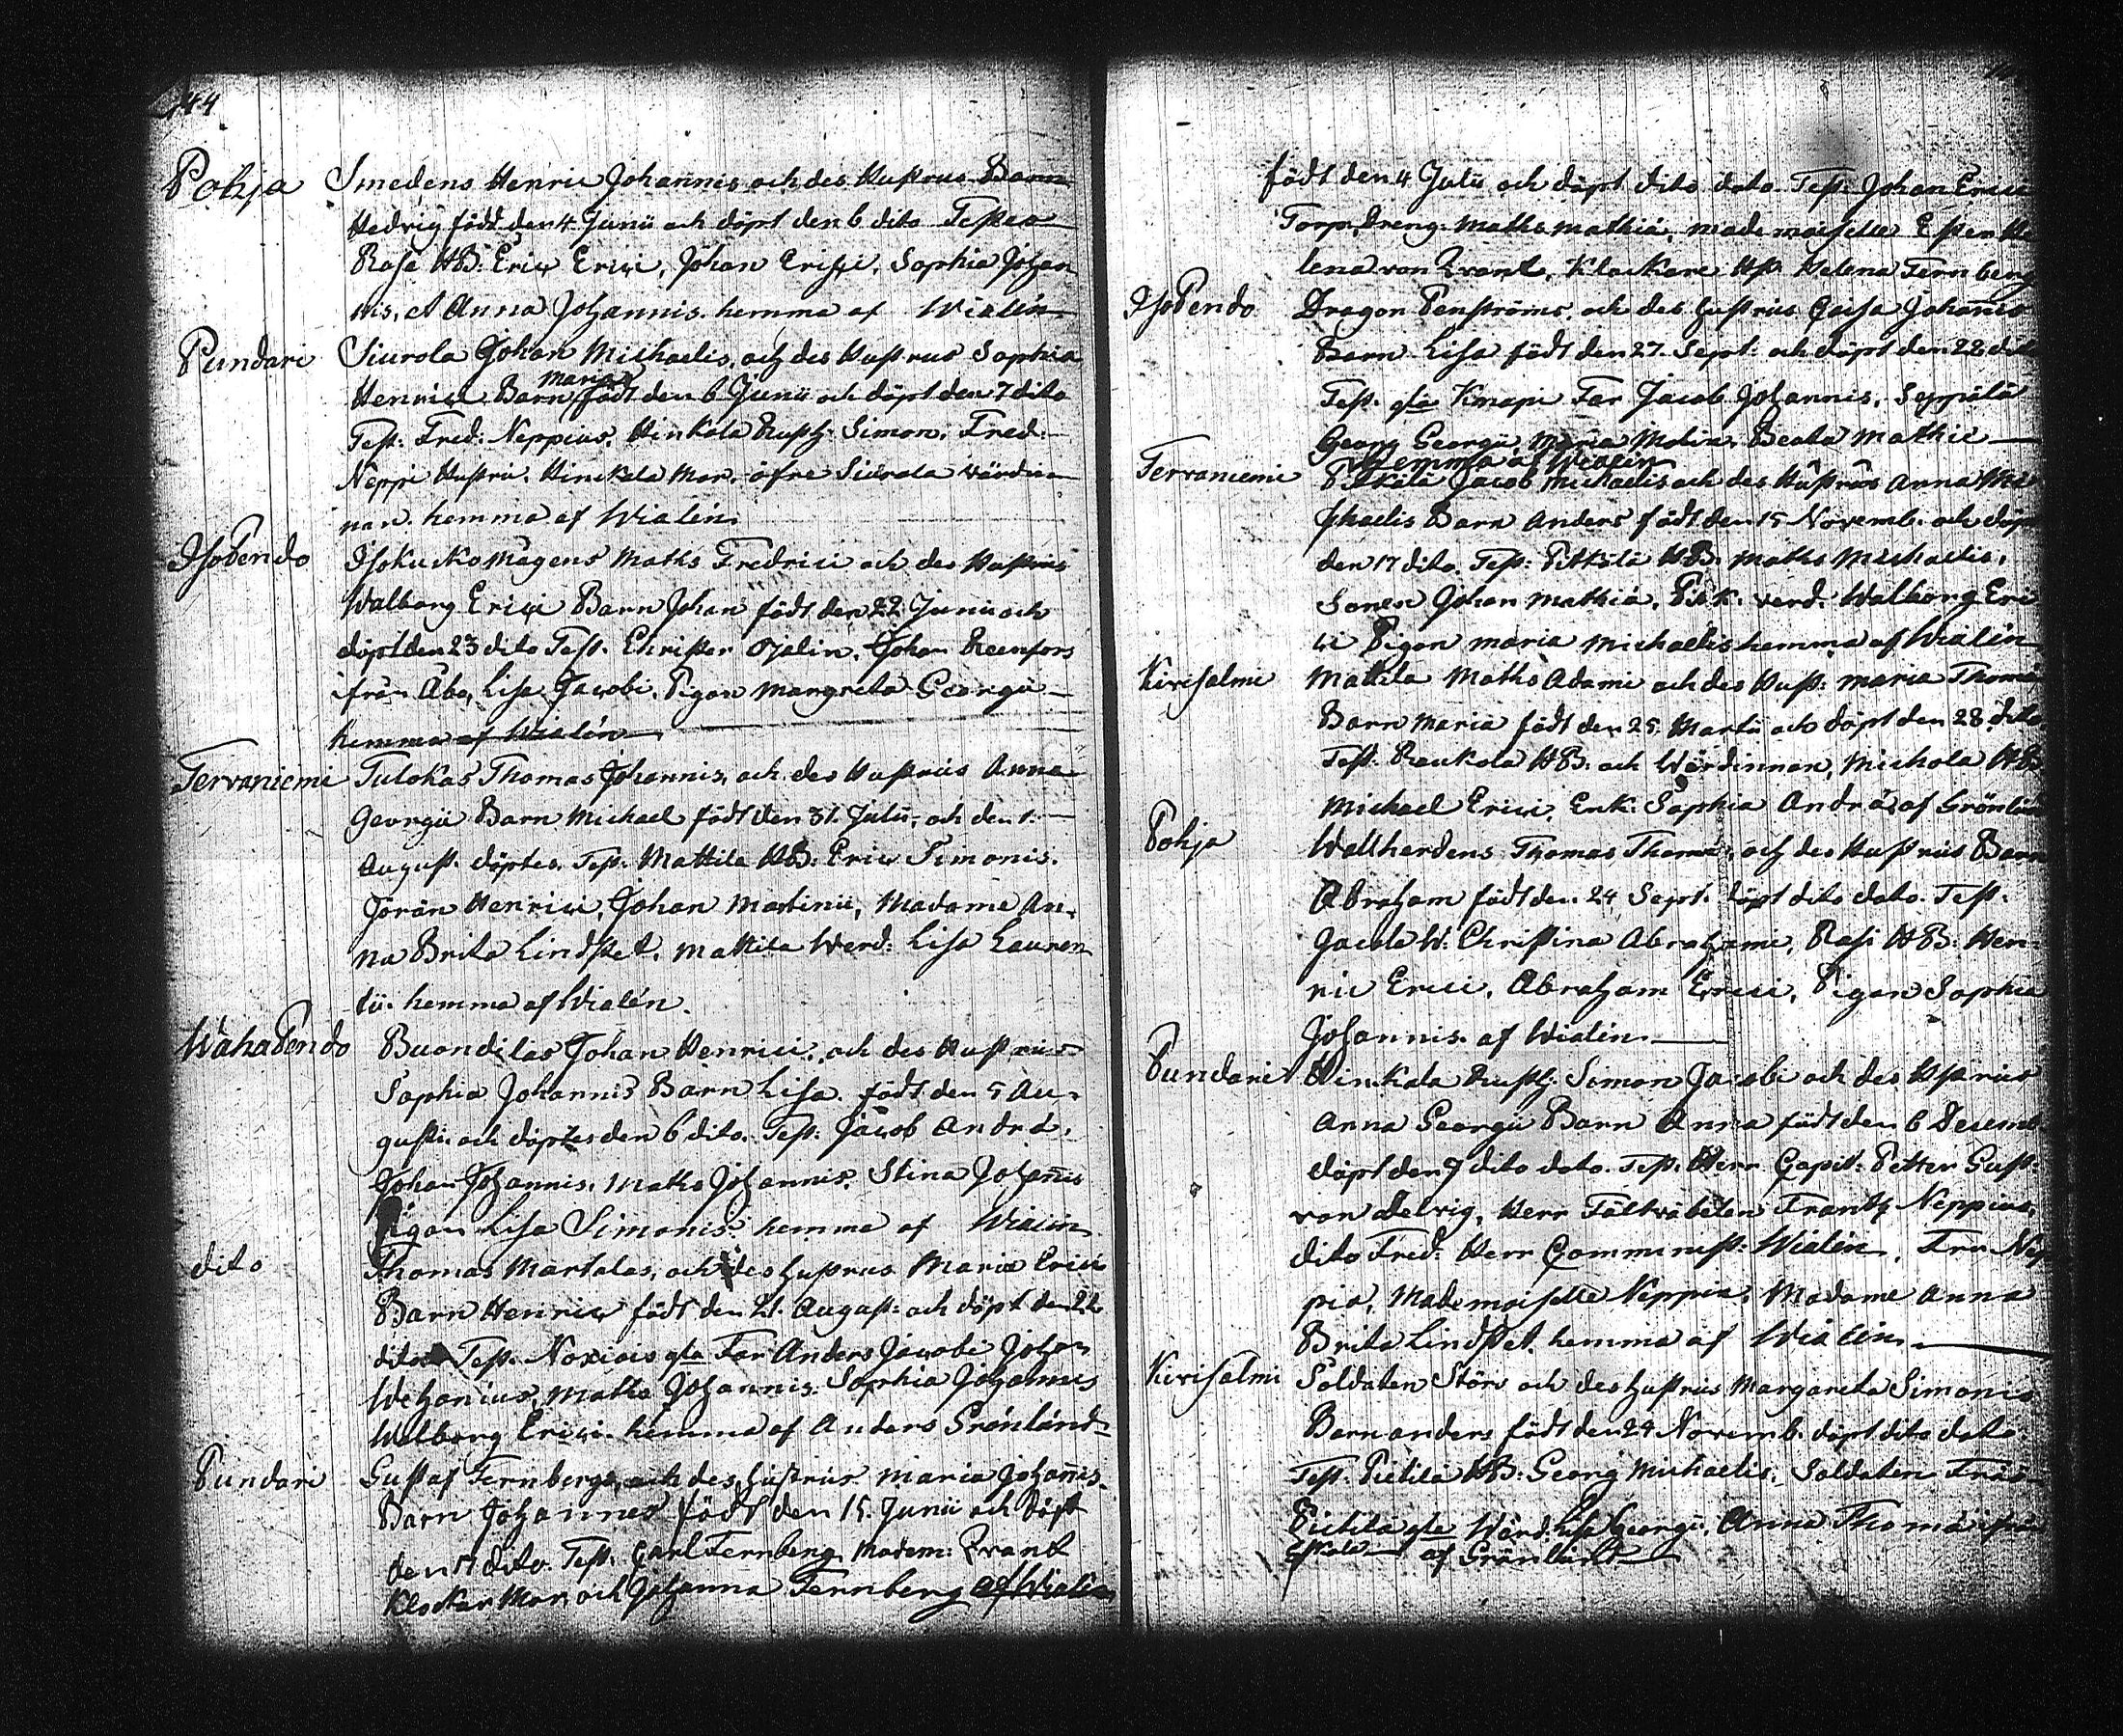 144
Pohja Smedens Henric Johannis och des Hustrus Barn
Hedvig född den 4 Junii och döpt den 6 dito Testes
Rasa HB. Eric Erici, Johan Erissi, Sophia Johan
nis, et Anna Johannis. hemma af Wialén
Pundari Siurola Johan Michaelis, och des Hustrus Sophia
Henrici Barn Maria född den 6 Junii och döpt den 7 dito
Test: Fred: Neppius, Hinkala Rusth: Simon, Fred:
Neppi Hustru, Hinckala Mor, öfre Siurala värdin
nan. hemma af Wialén
Isopendo Isokuckomågens Maths Fredrici och des Hustrus
Walborg Erici Barn Johan född den 22 Junii och
döpt den 23 dito Test. Christer Ojelin, Johan Reenfors
ifrån Åbo, Lisa Jacobi, Pigan Margreta Georgii
hemma af Wialén
Tervaniemi Tulokas Thomas Johannis, och des Hustrus Anna
Georgii Barn Michael född den 31. Julii, och den 1.
August. döptes. Test. Mattila HB. Eric Simonis.
Jöran Henrici, Johan Martinii, Madame An-
na Brita Lindstet, Mattila Werd: Lisa Lauren
tii. hemma af Wialén.
Wähäpendo Buondilas Johan Henrici, och des Hustrus
Sophia Johannis Barn Lisa. född den 5 Au-
gusti och döptes den 6 dito. Test: Jacob Andræ,
Johan Johannis, Maths Johannis. Stina Johanis
Pigan Lisa Simonis. hemma af Wialén
dito Thomas Martalas, och des hustrus Maria Erici
Barn Henric född den 21. August: och döpt den 22
dito Test. Noxiais gla Far Anders Jacobi Johan
Wehanius, Maths Johannis. Sophia Johannis
Walborg Erici. hemma af Anders Grönlánd
Pundari Gustaf Fernbergs, och des hustrus Maria Johanis.
Barn Johannes född den 15. Junii och döpt
den 17 dito. Test. Carl Fernberg, Madem: Qvant
Klockar Mor och Johanna Fernberg af Wialén
född den 4 Julii och döpt dito dato. Test. Johan Erici
Torp. Dreng. Maths Mathiæ, Mademoiselle Ester He
lena von Qvant, Klackare Hst. Helena Fernberg
Isopendo Dragon Penströms, och des hustrus Caisa Johanis
Barn Lisa född den 27. Sept: och döpt den 28 dito
Test. gla Knapi Far Jacob Johannis, Seppälä
Georg Georgii, Maria Matia, Beata Mathie
hemma af Wialén
Tervaniemi Pitkälä Jacob Michaelis och des Hustrus Anna Mi
chaelis Barn Anders född den 15 Novemb. och döpt
den 17 dito. Test: Pitkälä HB. Maths Michaelis,
Sonen Johan Mathiæ, Pitk. verd. Walborg Eri
ci Pigan Maria Michaelis hemma af Wialén
Kirisalmi Mattila Maths Adami och des Hust: Maria Thomæ
Barn Maria född den 25. Martii och döpt den 28 dito
Test. Raukola HB. och Wärdinnan, Michola HB.
Michael Erici, Enk: Sophia Andræ af Grönlánd
Pohja Wallherdens Thomas Thomæ, och des Hustrus Barn
Abraham född den 24 Sept. döpt dito dato. Test.
Jacola W: Christina Abrahami, Rasi HB. Hen-
ric Erici, Abraham Erici, Pigan Sophia
Johannis. af Wialén
Pundari Hinkala Rusth: Simon Jacobi och des Hstrus
Anna Georgii Barn Anna född den 6 Decemb
döpt den 7 dito dato. Test. Herr Capit: Petter Gust:
von Delvig, Herr Fältväbelen Frantz Neppius,
dito Fred: Herr Comminist: Wialén, Fru Nep
pia, Mademoiselle Neppia, Madame Anna
Brita Lindstet. hemma af Wialén
Kirisalmi Soldaten Störs och des hustrus Margareta Simonis
Barn Anders född den 24 Novemb. döpt dito dato
Test. Pietilä HB: Georg Michaelis, Soldaten Fräs
Pietilä gla Wärd. Lisa Georgi. Anna Thomæ ifrån
af Grönlánd